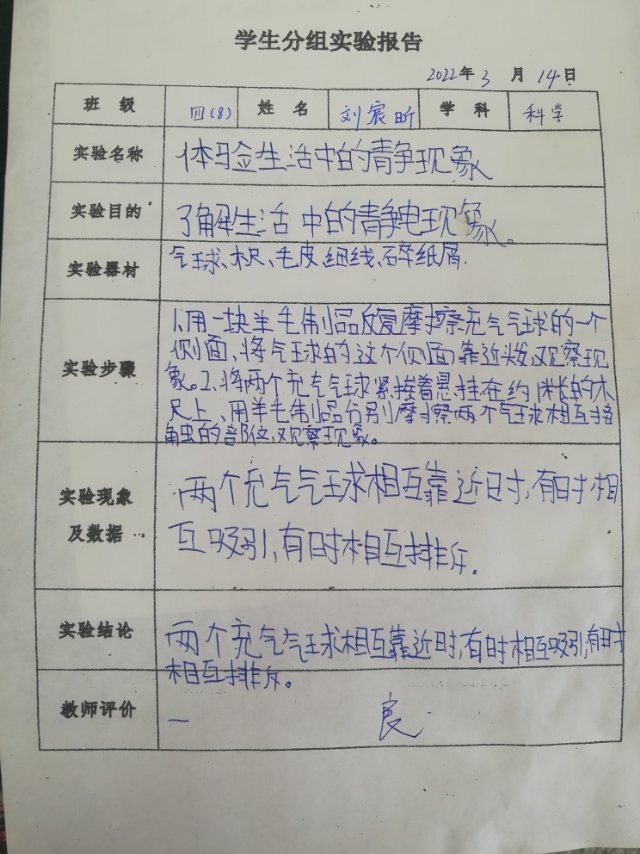 学生分组实验报告
2022年3月14日
班级 四(8) 姓名 刘宸昕 学科 科学
实验名称 体验生活中的青争现象
实验目的 了解生活中的静电现象。
实验器材 气球、木尺、毛皮、细线、碎纸屑.
实验步骤
1.用一块羊毛制品反复摩擦充气气球的一个
侧面、将气球的这个侧面靠近头发,观察现
象。2.将两个充气气球紧挨着悬挂在约1米长的木
尺上、用羊毛制品分别摩擦两个气球相互接
触的部位,观察现象。
实验现象及数据
两个充气气球相互靠近时,有时相
互吸引,有时相互排斥.
实验结论
两个充气气球相互靠近时,有时相互吸引,有时
相互排斥。
教师评价 一 良.